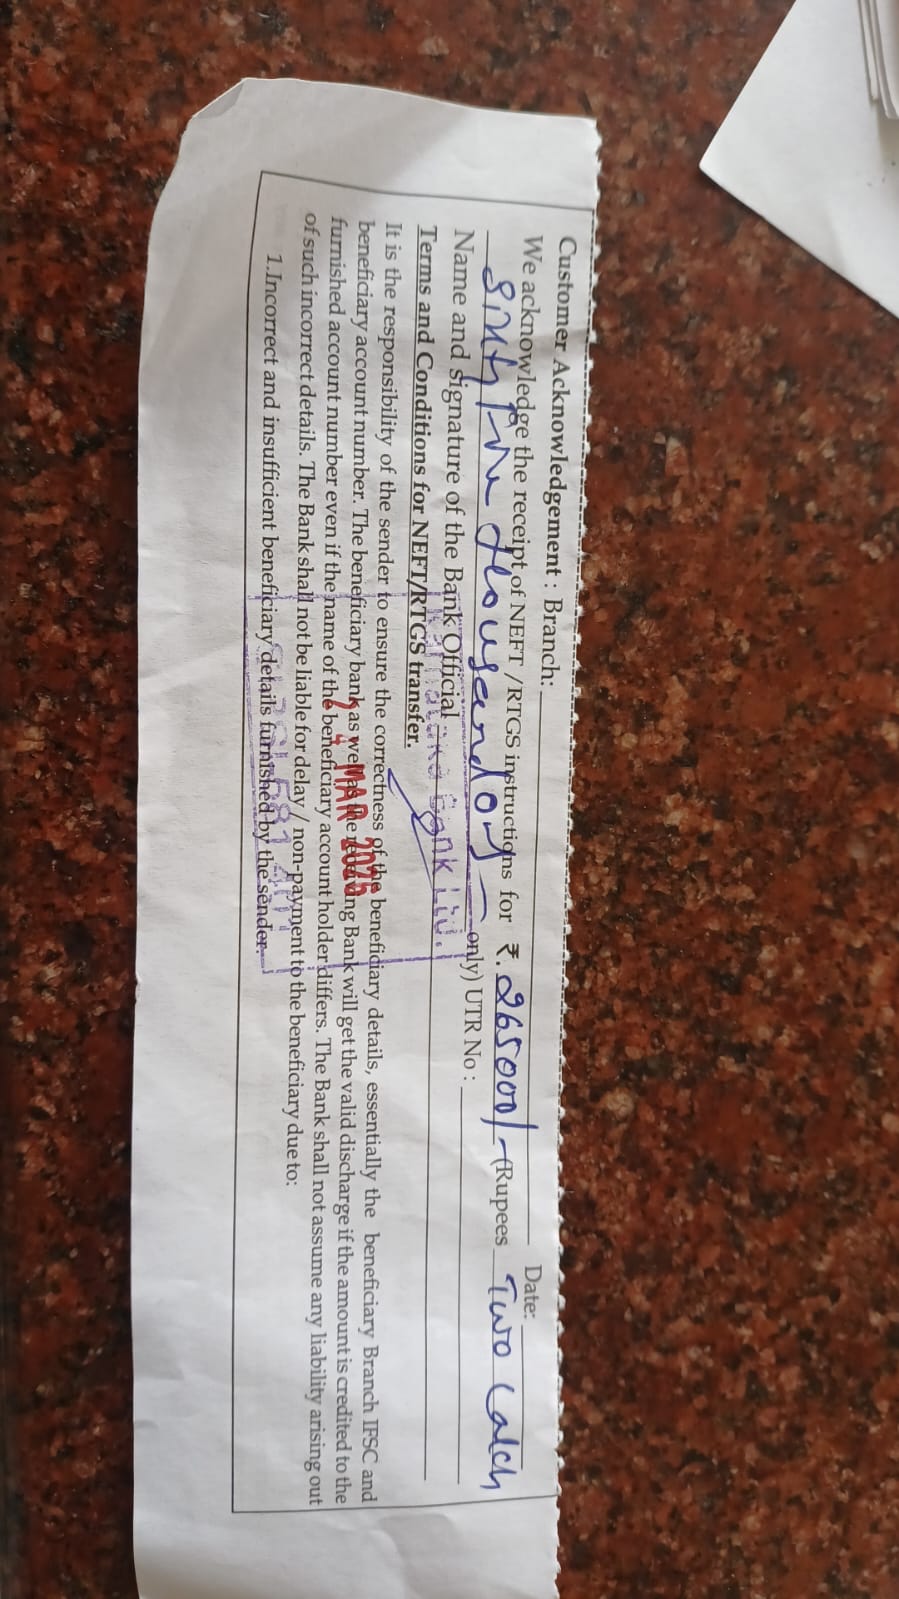 Customer Acknowledgement : Branch: Date:
We acknowledge the receipt of NEFT / RTGS instructions for ₹. 265000/- (Rupees Two Lakh
Sixty Five thousand only only) UTR No :
Name and Signature of the Bank Official
Karnataka Bank Ltd.
Terms and Conditions for NEFT/RTGS transfer.
It is the responsibility of the sender to ensure the correctness of the beneficiary details, essentially the beneficiary Branch IFSC and
beneficiary account number. The beneficiary bank as well as the receiving Bank will get the valid discharge if the amount is credited to the
MAR 2025
furnished account number even if the name of the beneficiary account holder differs. The Bank shall not assume any liability arising out
of such incorrect details. The Bank shall not be liable for delay / non-payment to the beneficiary due to:
1.Incorrect and insufficient beneficiary details furnished by the sender.